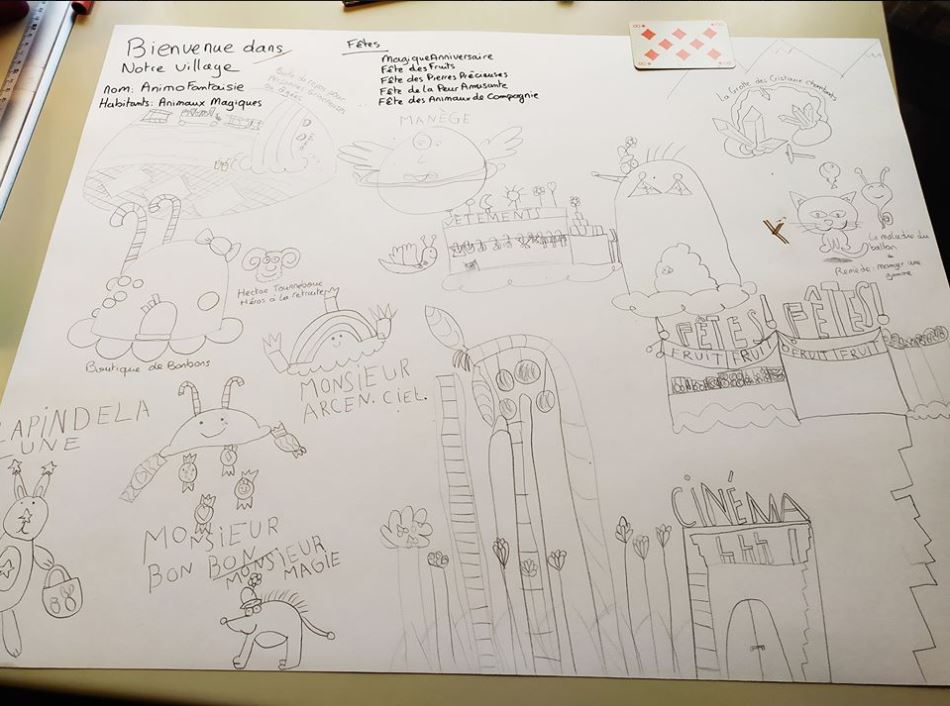 Bienvenue dans
Notre village
nom: AnimoFantaisie
Habitants: Animaux Magiques
Fêtes
MagiqueAnniversaire
Fête des Fruits
Fête des Pierres Précieuses
Fête de la Peur Amusante
Fête des Animaux de Compagnie
MANÈGE
La Grotte des Cristaux chantants
VÊTEMENTS
La maladie du
ballon
Remède: manger une
gomme
Hector
Héros à la retraite
Boutique de Bonbons
MONSIEUR
ARC.EN.CIEL.
FÊTES!
FÊTES!
FRUIT FRUIT
FRUIT FRUIT
LAPIN DE LA
LUNE
MONSIEUR
BON BON
MONSIEUR
MAGIE
CINÉMA